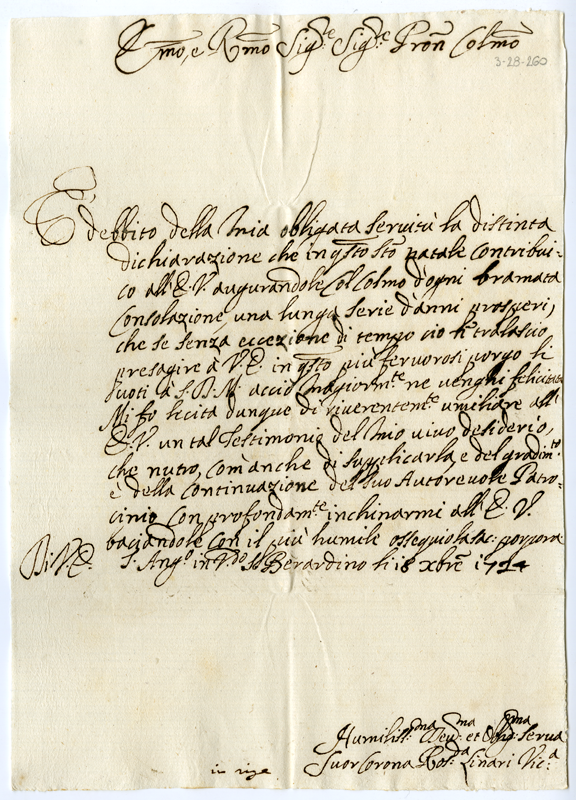 Emo, e Rmo Sigre Sigre Pron Colmo
3-28-260
È debbito della mia obligata servitù la distinta
dichiarazione che in qsto Sto natale contribui-
co all'E.V. augurandole col colmo d'ogni bramata
Consolazione, una lunga serie d'anni prosperi,
che se senza eccezione di tempo cio no tralascio
presagire à V.E. in qsto più fervorosi porgo li
suoti à S.D.M. acciò magiormte ne venghi felicitata
Mi fo licita dunque di riverentemte umiliare all'
E.V. un tal Testimonio del mio vivo desiderio,
che nutro, com'anche di supplicarla e del gradimto
e della continuazione del suo Autorevole Patro-
cinio con profondamte inchinarmi all'E.V.
baciandole con il più humile ossequio la sac: porpora
Di V.E. S. Angº in Vdo S. Berardino li 18 xbre 1724
Humilissma Devma et Obgma Serva
Suor Corona Rosda Linari Vica